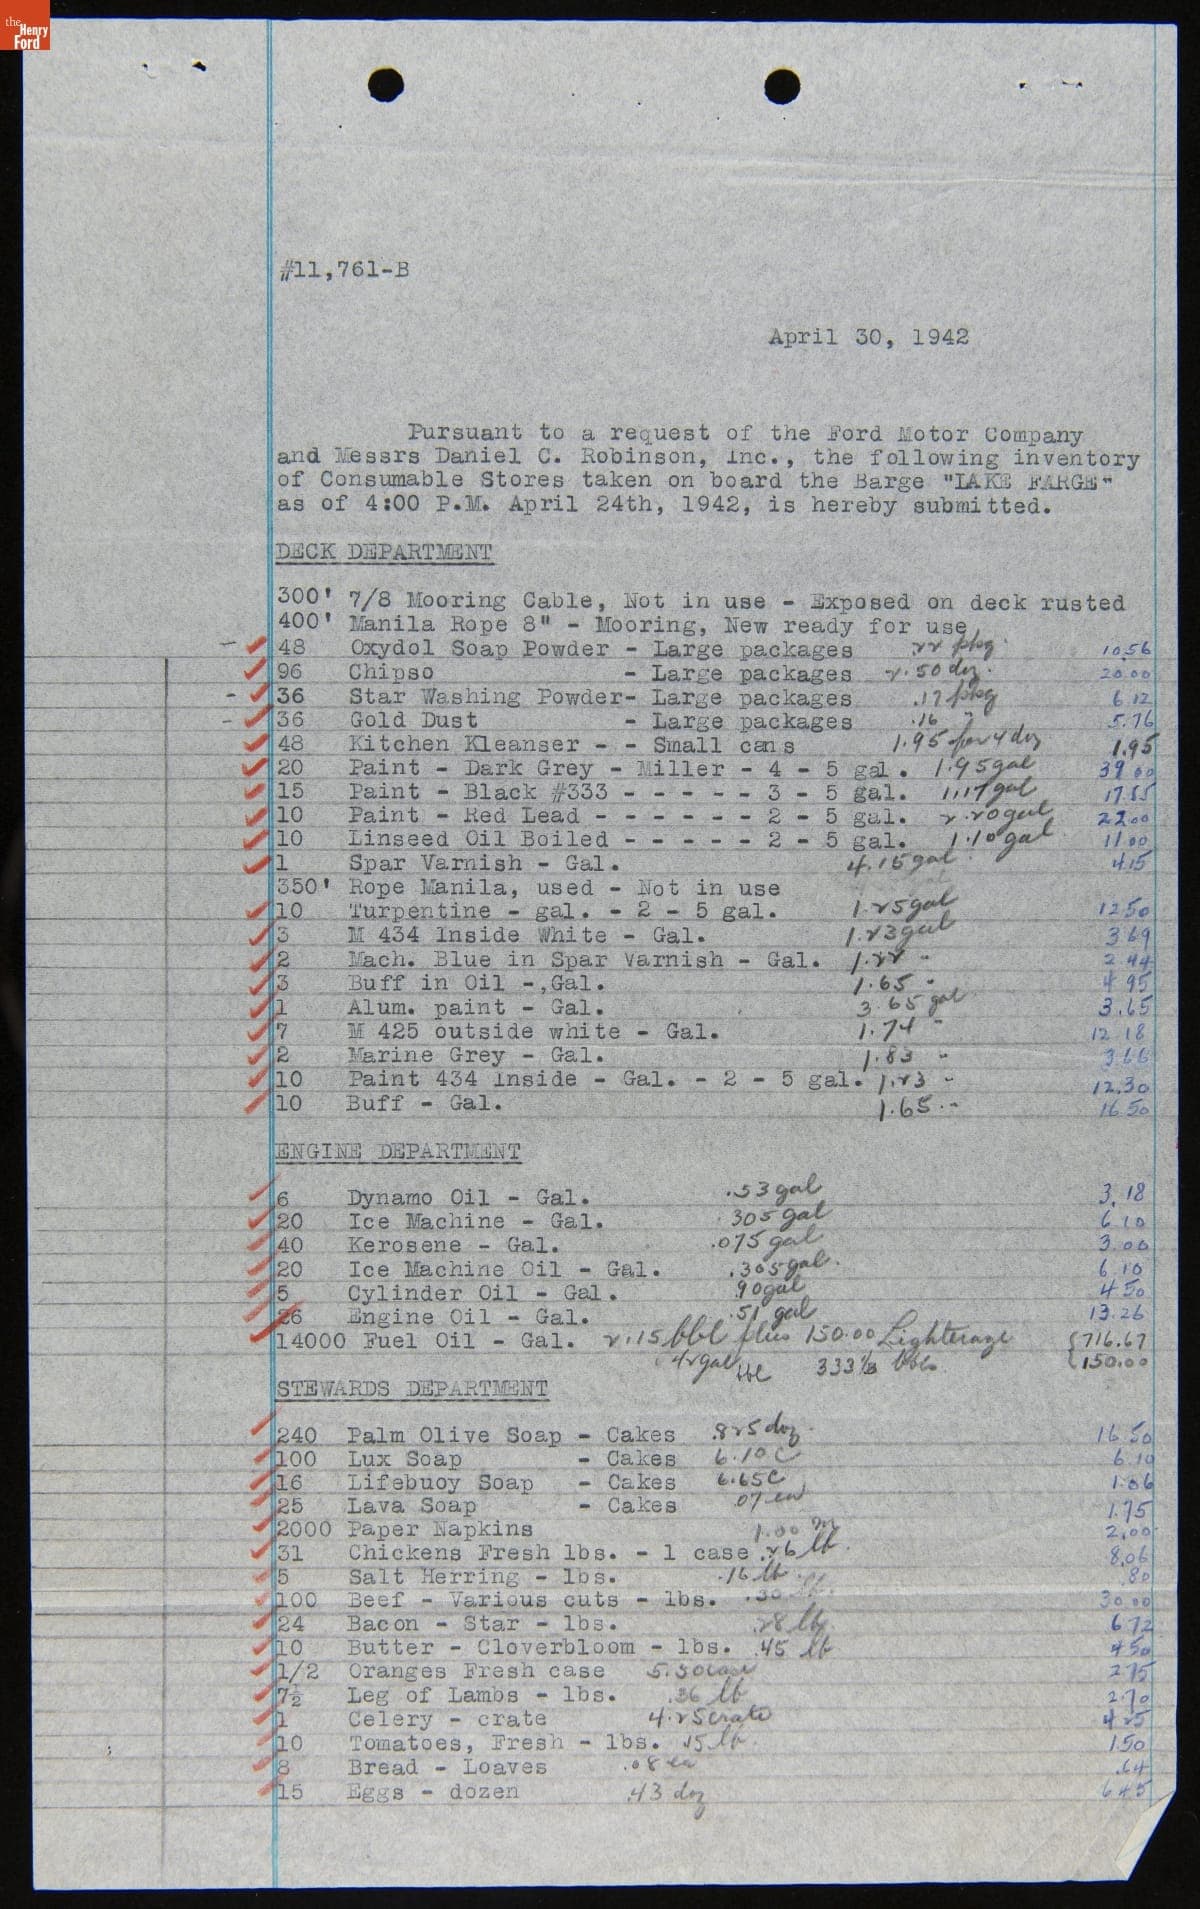 the
Henry
Ford
#11,761-B
April 30, 1942
Pursuant to a request of the Ford Motor Company
and Messrs Daniel C. Robinson, Inc., the following inventory
of Consumable Stores taken on board the Barge "LAKE FARGE"
as of 4:00 P.M. April 24th, 1942, is hereby submitted.
DECK DEPARTMENT
300' 7/8 Mooring Cable, Not in use - Exposed on deck rusted
400' Manila Rope 8" - Mooring, New ready for use
48 Oxydol Soap Powder - Large packages .22 pkg. 10.56
96 Chipso - Large packages 2.50 doz. 20.00
36 Star Washing Powder- Large packages .17 pkg 6 12
36 Gold Dust - Large packages .16 " 5.76
48 Kitchen Kleanser - - Small cans 1.95 for 4 doz 1.95
20 Paint - Dark Grey - Miller - 4 - 5 gal. 1.95 gal 39 00
15 Paint - Black #333 - - - - - 3 - 5 gal. 1.17 gal 17.55
10 Paint - Red Lead - - - - - - 2 - 5 gal. 2.20 gal 22.00
10 Linseed Oil Boiled - - - - - 2 - 5 gal. 1.10 gal 11 00
1 Spar Varnish - Gal. 4.15 gal. 4.15
350' Rope Manila, used - Not in use
10 Turpentine - gal. - 2 - 5 gal. 1.25 gal 12 50
3 M 434 Inside White - Gal. 1.23 gal 3 69
2 Mach. Blue in Spar Varnish - Gal. 1.22 " 2 44
3 Buff in Oil -,Gal. 1.65 " 4 95
1 Alum. paint - Gal. 3.65 gal 3.65
7 M 425 outside white - Gal. 1.74 " 12 18
2 Marine Grey - Gal. 1.83 " 3 66
10 Paint 434 Inside - Gal. - 2 - 5 gal. 1.23 " 12.30
10 Buff - Gal. 1.65 " 16 50
ENGINE DEPARTMENT
6 Dynamo Oil - Gal. .53 gal 3.18
20 Ice Machine - Gal. .305 gal 6 10
40 Kerosene - Gal. .075 gal 3.00
20 Ice Machine Oil - Gal. .305 gal. 6 10
5 Cylinder Oil - Gal. .90 gal 4 50
26 Engine Oil - Gal. .51 gal 13.26
14000 Fuel Oil - Gal. 2.15 bbl plus 150.00 Lighterage {716.67
42 gal bbl 333 1/3 bbls. 150.00
STEWARDS DEPARTMENT
240 Palm Olive Soap - Cakes .825 doz. 16 50
100 Lux Soap - Cakes 6.10 C 6 10
16 Lifebuoy Soap - Cakes 6.65 C 1.06
25 Lava Soap - Cakes .07 ea 1.75
2000 Paper Napkins 1.00 2.00
31 Chickens Fresh lbs. - 1 case .26 lb. 8.06
5 Salt Herring - lbs. .16 lb. 80
100 Beef - Various cuts - lbs. .30 lb. 30 00
24 Bacon - Star - lbs. .28 lb. 6 72
10 Butter - Cloverbloom - lbs. .45 lb 4 50
1/2 Oranges Fresh case 5.50 case 2 75
7½ Leg of Lambs - lbs. .36 lb 2.70
1 Celery - crate 4.25 crate 4 25
10 Tomatoes, Fresh - lbs. .15 lb. 1.50
8 Bread - Loaves .08 ea .64
15 Eggs - dozen .43 doz 6 45